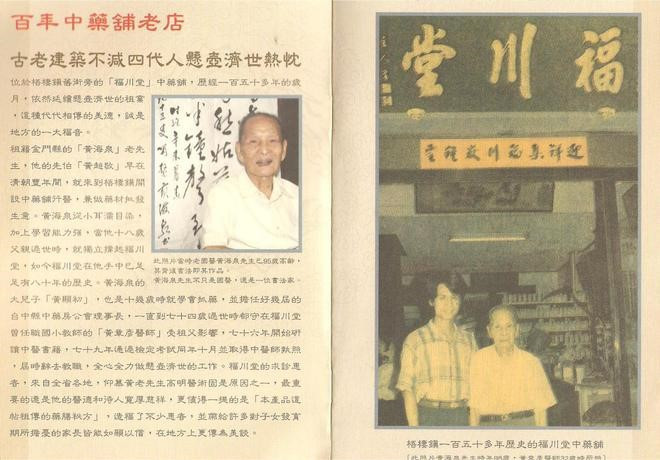 百年中藥舖老店
古老建築不減四代人懸壺濟世熱忱
位於梧棲鎮舊街旁的「福川堂」中藥舖，歷經一百五十多年的歲
月，依然延續懸壺濟世的祖業
，這種代代相傳的美德，誠是
地方的一大福音。
祖籍金門縣的「黃海泉」老先
生，他的先伯「黃起敬」早在
清朝豐年間，就來到梧棲鎮開
設中藥舖行醫，兼做藥材批發
生意。黃海泉從小耳濡目染，
加上學習能力強，當他十八歲
父親過世時，就獨立撐起福川
堂，如今福川堂在他手中已足
足有八十年的歷史。黃海泉的
大兒子「黃顯初」，也是十幾歲時就學會抓藥，並擔任好幾屆的
台中縣中藥房公會理事長，一直到七十四歲過世時都守在福川堂
曾任職國小教師的「黃章彥醫師」受祖父影響，七十六年開始研
讀中醫書籍，七十九年通過檢定考試同年十月並取得中醫師執照
，屆時辭去教職，全心全力做懸壺濟世的工作。福川堂的求診患
者，來自全省各地，仰慕黃老先生高明醫術固是原因之一，最重
要的還是他的醫德和待人寬厚慈祥，更值得一提的是「本產品這
帖祖傳的藥膳秘方」，造福了不少患者，並帶給許多對子女發育
期所擔憂的家長皆能如願以償，在地方上更傳為美談。
此照片當時老國醫黃海泉先生已95歲高齡，
其背後書法即其作品。
黃海泉先生不只是國醫，還是一位書法家。
福川堂
梧棲鎮一百五十多年歷史的福川堂中藥舖